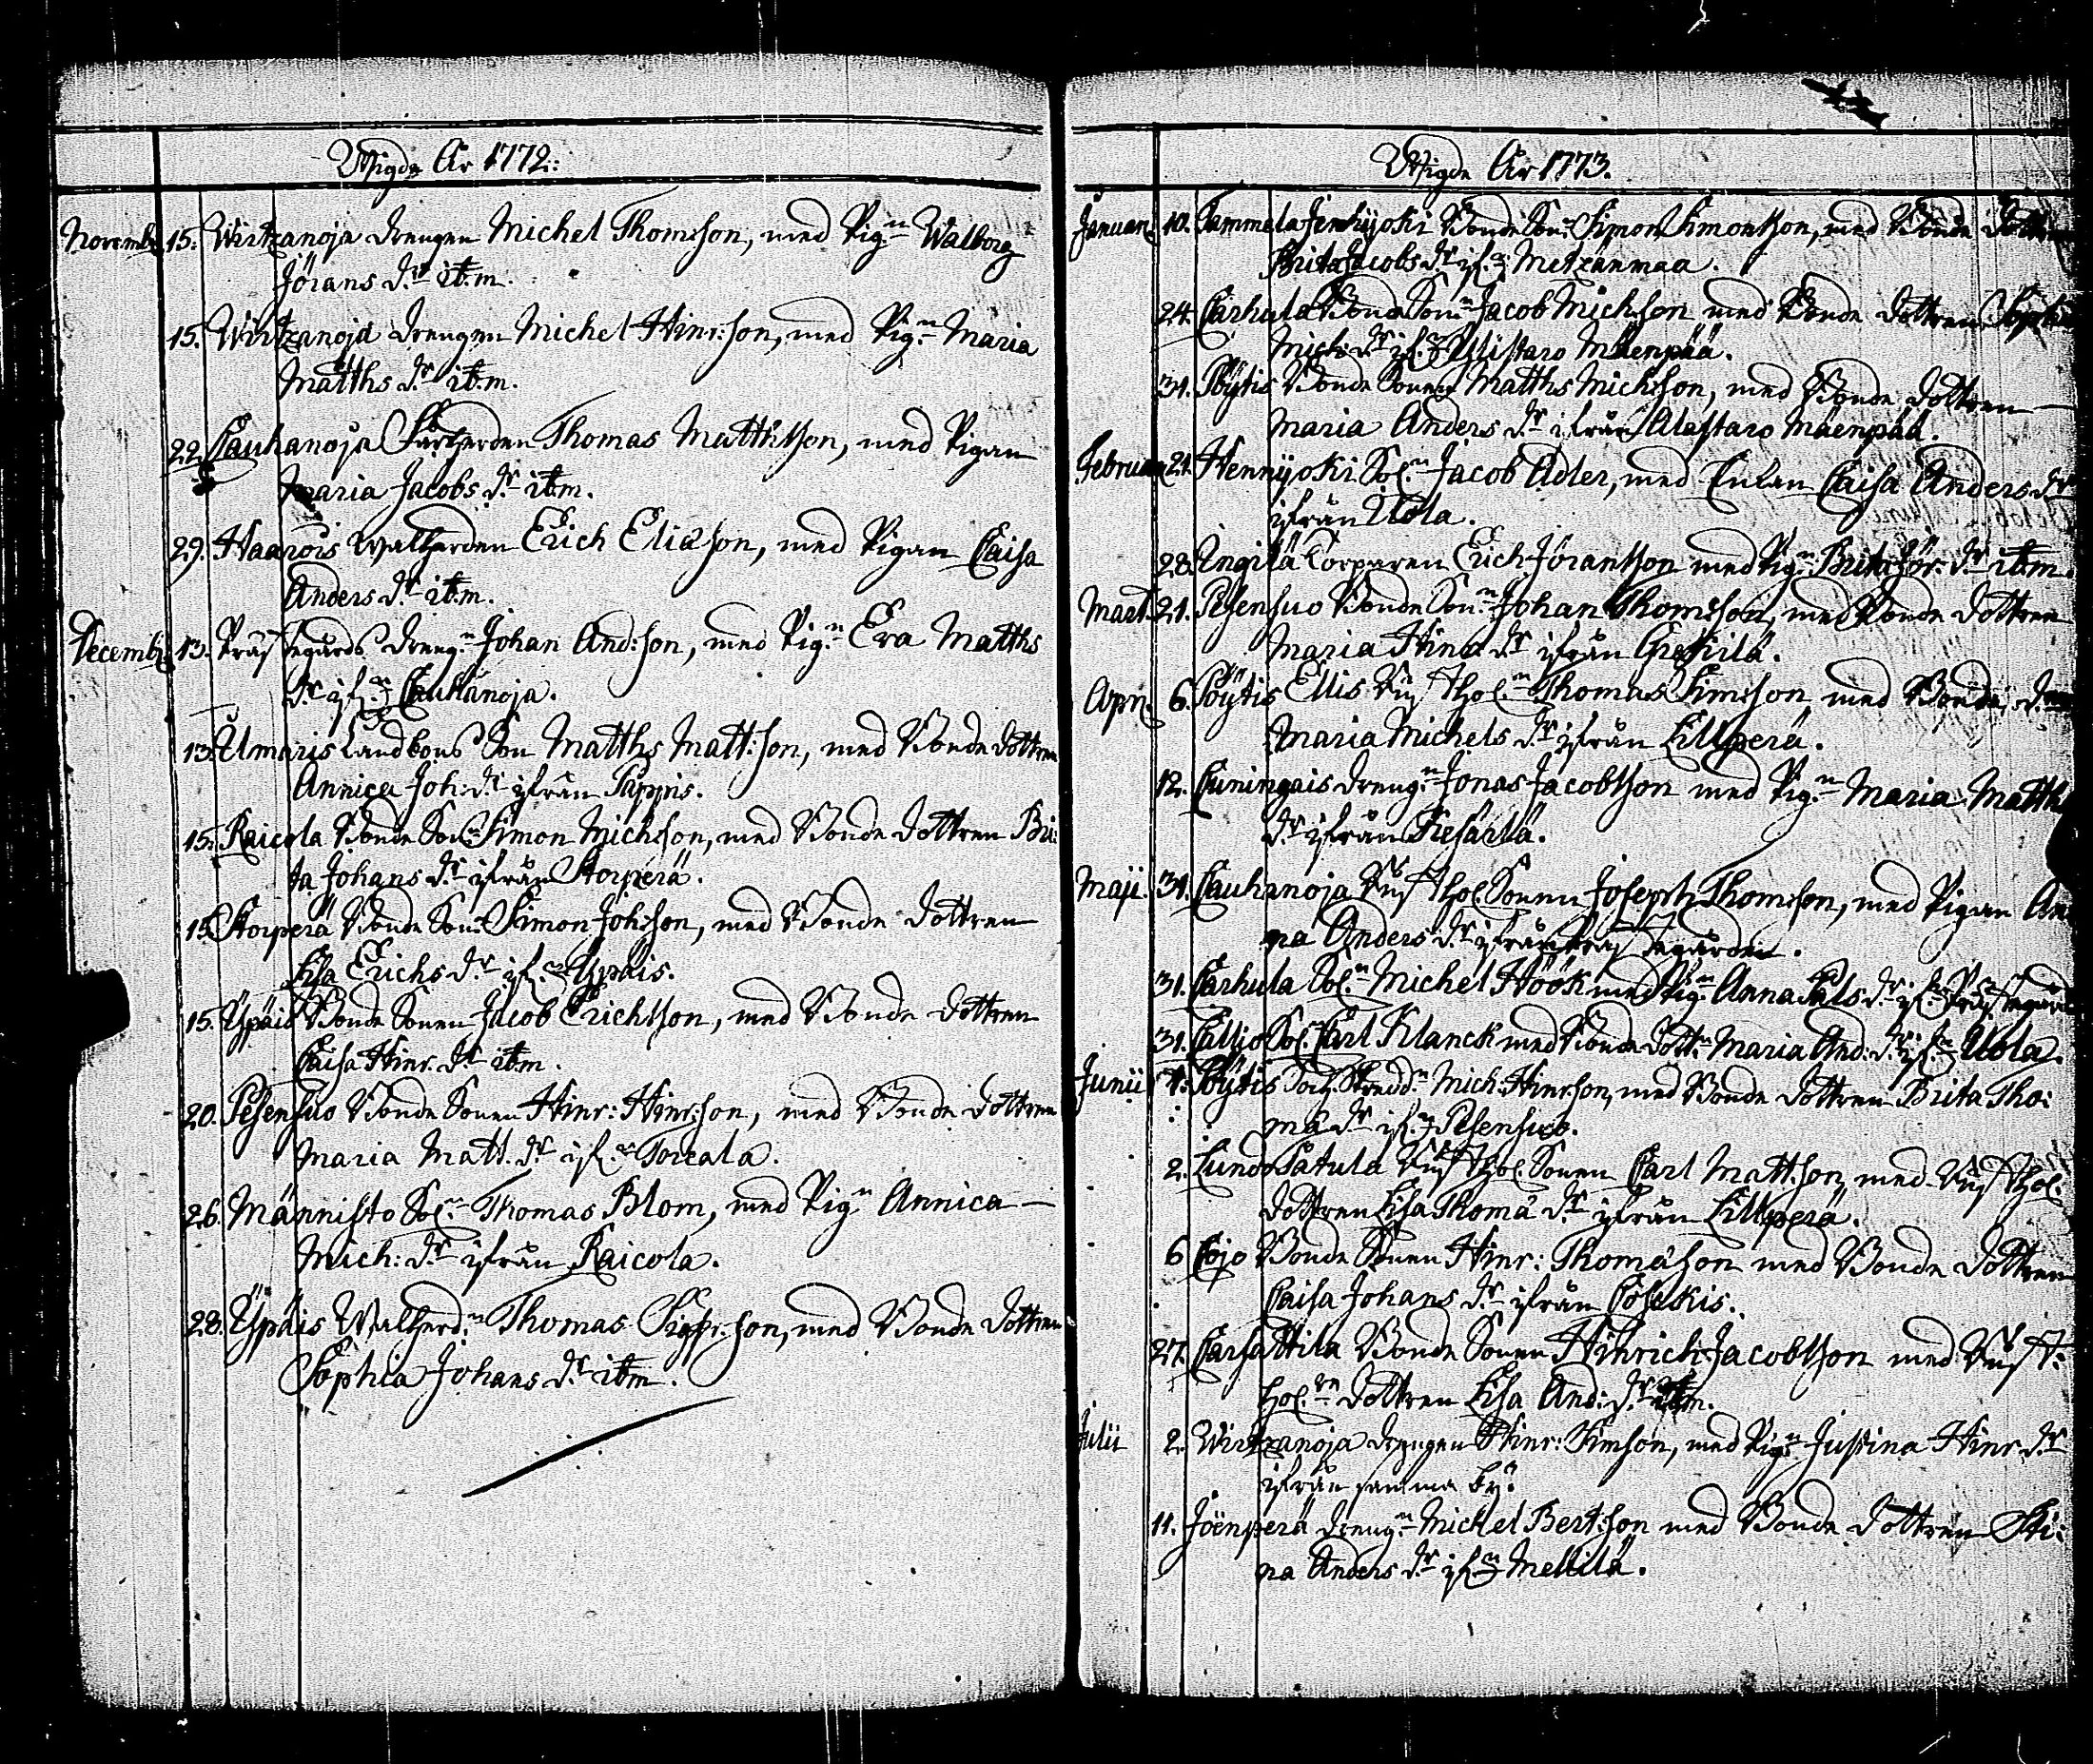 Wigde År 1772:
Novembr 15. Wirtzanoja drengen Michel Thomsson, med Pig:n Walborg
Jörans d:r it:m.
15. Wirtzanoja drengen Michel Hinr:son, med Pig:n Maria
Matths d:r it:m.
22. Cauhanoja Thomas Matthsson, med Pigan
Maria Jacobs d:r it:m.
29. Haarois Erich Eliæson, med Pigan Caisa
Anders d:r it:m.
Decembr 13. Prästegårds dreng:n Johan And:son, med Pig:n Eva Matths
d:r if:n Cauhanoja.
13. Ulmaris Landbons Son Matths Matt:son, med Bonde dottren
Annica Joh: d:r ifrån Pappis.
15. Raicola Bonde Son:n Simon Michsson, med Bonde dottren Bri:
ta Johans d:r ifrån Storperä.
15. Storperä Bonde Son:n Simon Johsson, med Bonde dottren
Lisa Erichs d:r if:n Ypäis.
15. Ypäis Bonde Sonen Jacob Erichsson, med Bonde dottren
Caisa Hinr. d:r it:m.
20. Pesensuo Bonde Sonen Hinr: Hinr:son, med Bonde dottren
Maria Matt. d:r if:n Torcala.
26. Männisto Sol:n Thomas Blom, med Pig:n Annica
Mich: d:r ifrån Raicola.
28. Ypäis Thomas Sigfr:son, med Bonde dottren
Sophia Johans d:r it:m.
Wigde År 1773.
Januari 10. Tammela Bonde Son:n Simon Simonsson, med Bonde dottren
Brita Jacobs d:r if:n Metzänmaa.
24. Carhula Bonde Son:n Jacob Michsson med Bonde dottren
Mich: d:r if:n Ylistaro Mäenpää.
31. Pöÿtis Bonde Sonen Matths Michsson, med Bonde dottren
Maria Anders d:r ifrån Alastaro Mäenpää.
Februari 21. Hennÿoki Sol:n Jacob Adler, med Enkan Caisa Anders d:r
ifrån Uola.
28. Ängilä Torparen Erich Jöransson med Pig:n Brita Jör: d:r it:m.
Mart. 21. Pesensuo Bonde Son:n Johan Thomsson, med Bonde dottren
Maria Hinr d:r ifrån
Apr. 6. Pöÿtis Ellis Rusthol:n Thomas Simsson, med Bonde
Maria Michels d:r ifrån Lillperä.
12. Cuningais dreng:n Jonas Jacobsson med Pig:n Maria Matth
d:r ifrån
Maji. 31. Cauhanoja Rusthol. Sonen Joseph Thomsson, med Pigan An
na Anders d:r ifrån Prästegården.
31. Carhula Sol:n Michel Höök med Pig:n Anna d:r if:n Prästegård
31. Callio Sol. Carl Klanck med Bonde dott:n Maria And: d:r if:n Uola.
Junii 1. Pöÿtis Mich: Hinrsson, med Bonde dottren Brita Tho:
mæ d:r if:n Pesensuo.
2. Lundo Patula Rusthol Sonen Carl Mattsson, med Rusthol.
dottren Lisa Thomæ d:r ifrån Lillperä.
6. Cojo Bonde Sonen Hinr: Thomæson med Bonde dottren
Caisa Johans d:r ifrån Cosckis.
27. Carsattila Bonde Sonen Hinrich Jacobsson med Rust:
hol:rn dottren Lisa And: d:r it:m.
Julii 2. Wirtzanoja drengen Hinr: Simson, med Pig:n Justina Hinr. d:r
ifrån samma by.
11. Jöenperä dreng:n Michel Bert:son med Bonde dottren Sti:
na Anders d:r if:n Mellilä.